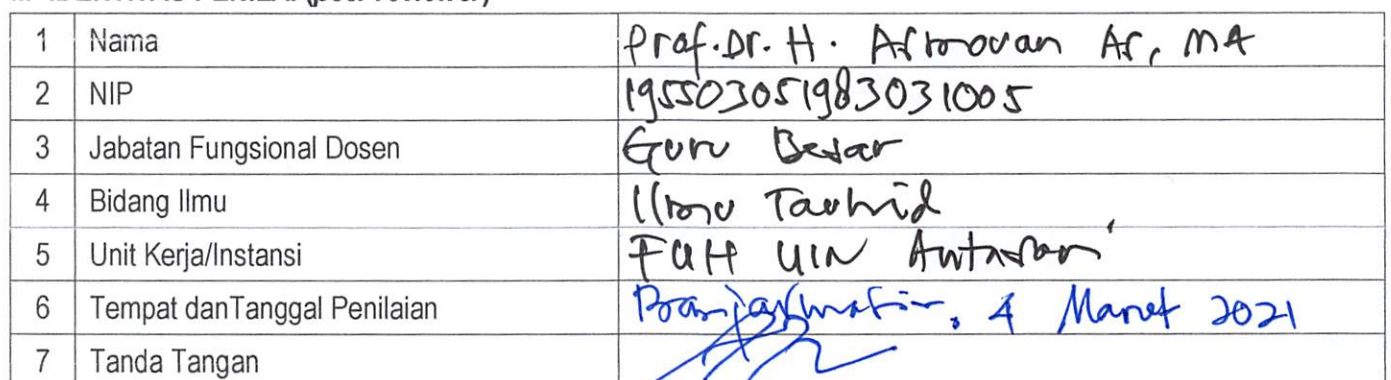 1 Nama Prof. Dr. H. Asmaran As, MA
2 NIP 195503051983031005
3 Jabatan Fungsional Dosen Guru Besar
4 Bidang Ilmu Ilmu Tauhid
5 Unit Kerja/Instansi FUH UIN Antasari
6 Tempat danTanggal Penilaian Banjarmasin, 4 Maret 2021
7 Tanda Tangan